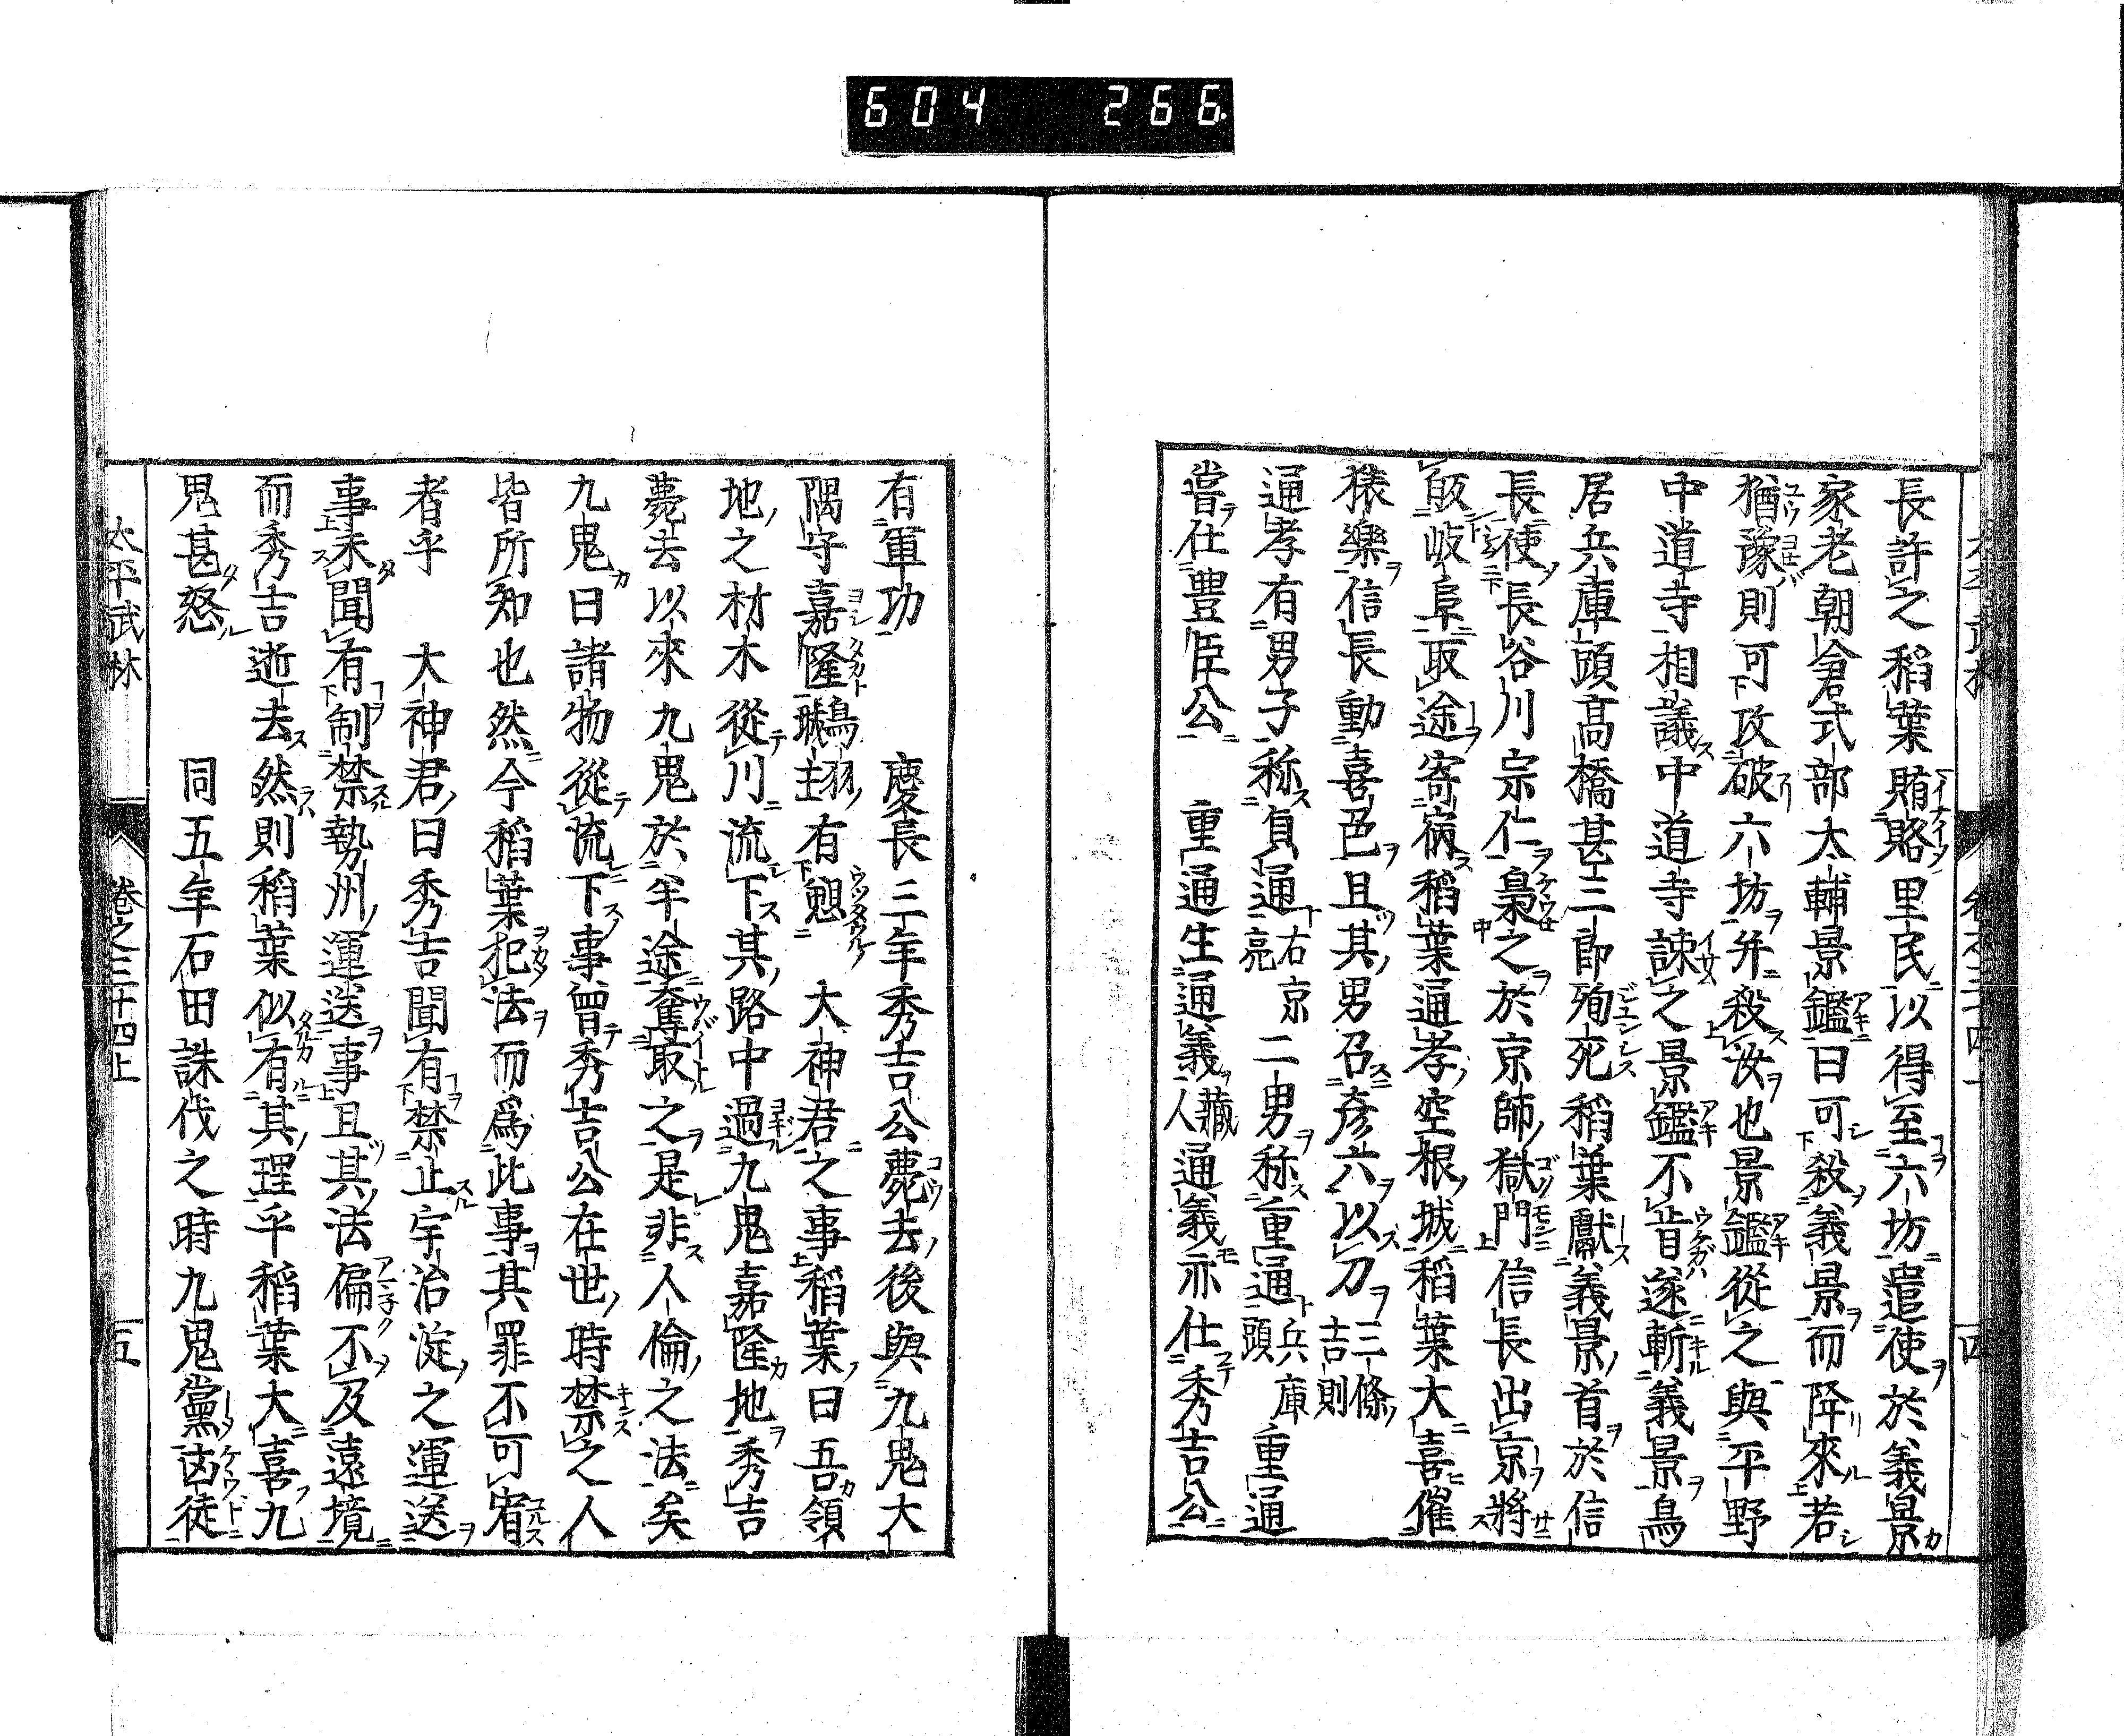 604 266
長許之稲葉賄賂里民以得至六坊遣使於義景
家老朝倉式部大輔景鑑曰可殺義景而降來若
猶豫則可攻破六坊并殺汝也景鑑從之與平野
中道寺相議中道寺諌之景鑑不肯遂斬義景鳥
居兵庫頭高橋甚三郎殉死稲葉獻義景首於信
長使長谷川宗仁梟之於京師獄門信長出京將
皈岐阜取途寄病稲葉通孝空根城稲葉大喜催
猿樂信長動喜色且其男召彦六以刀三條吉則
通孝有男子称貞通右京亮二男称重通兵庫頭重通
嘗仕豊臣公 重通生通義蔵人通義亦仕秀吉公
有軍功 慶長三年秀吉公薨去後與九鬼大
隅守嘉隆鳥羽城主有怨 大神君之事稲葉曰吾領
地之材木從川流下其路中過九鬼嘉隆地秀吉
薨去以來九鬼於半途奪取之是非人倫之法矣
九鬼曰諸物從流下事曽秀吉公在世時禁之人
皆所知也然今稲葉犯法而爲此事其罪不可宥
者乎 大神君曰秀吉聞有禁止宇治淀之運送
事未聞有制禁勢州運送事且其法偏不及遠境
而秀吉逝去然則稲葉似有其理乎稲葉大喜九
鬼甚怒 同五年石田誅伐之時九鬼黨凶徒
太平武林 卷之三十四上 五